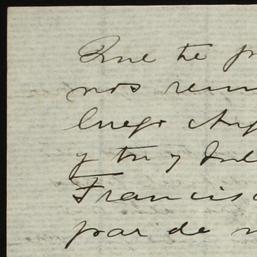 Que te p
nos reun
luego Ang
y tu y Jul
Francisc
par de n